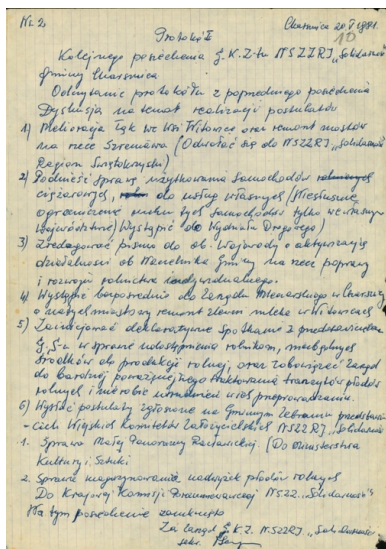 Nr 2
Charsznica 20.V 1981
10
Protokół
Kolejnego posiedzenia G.K.Z-tu NSZZRJ „Solidarność"
gminy Charsznica
Odczytanie protokołu z poprzedniego posiedzenia
Dyskusja na temat realizacji postulatów
1) Melioracja łąk we Wsi Witowice oraz remont mostów
na rzece Szreniawa (Odwołać się do NSZZRJ „Solidarność
Regionu Świętokrzyski)
2) Podnieść sprawę użytkowania samochodów
ciężarowych, do usług własnych (Niesłuszne
ograniczenie ruchu tych samochodów tylko we własnym
województwie) Wystąpić do Wydziału Drogowego)
3) Zredagować pismo do ob. Wojewody o aktywizację
działalności ob Naczelnika Gminy na rzecz poprawy
i rozwoju rolnictwa indywidualnego.
4) Wystąpić bezpośrednio do Zarządu Mleczarskiego w Charsznicy
o natychmiastowy remont zlewni mleka w Witowicach
5) Zainicjować deklaratywne Spotkanie z przedstawicielem
G.S-u w sprawie udostępnienia rolnikom, niezbędnych
środków do produkcji rolnej, oraz zobowiązać Zarząd
do bardziej poważniejszego traktowania tranzytów płodów
rolnych i nie robić utrudnień w ich przeprowadzaniu.
6) Wysłać postulaty zgłoszone na Gminnym Zebraniu przedstawi-
-cieli Wiejskich Komitetów Założycielskich NSZZRJ „Solidarność
1. Sprawa Małej Panoramy Racławickiej. (Do Ministerstwa
Kultury i Sztuki
2. Sprawa magazynowania nadwyżek płodów rolnych
Do Krajowej Komisji Porozumiewawczej NSZZ „Solidarność")
Na tym posiedzenie zamknięto
Za Zarząd G.K.Z. NSZZRJ „Solidarność"
sekr.